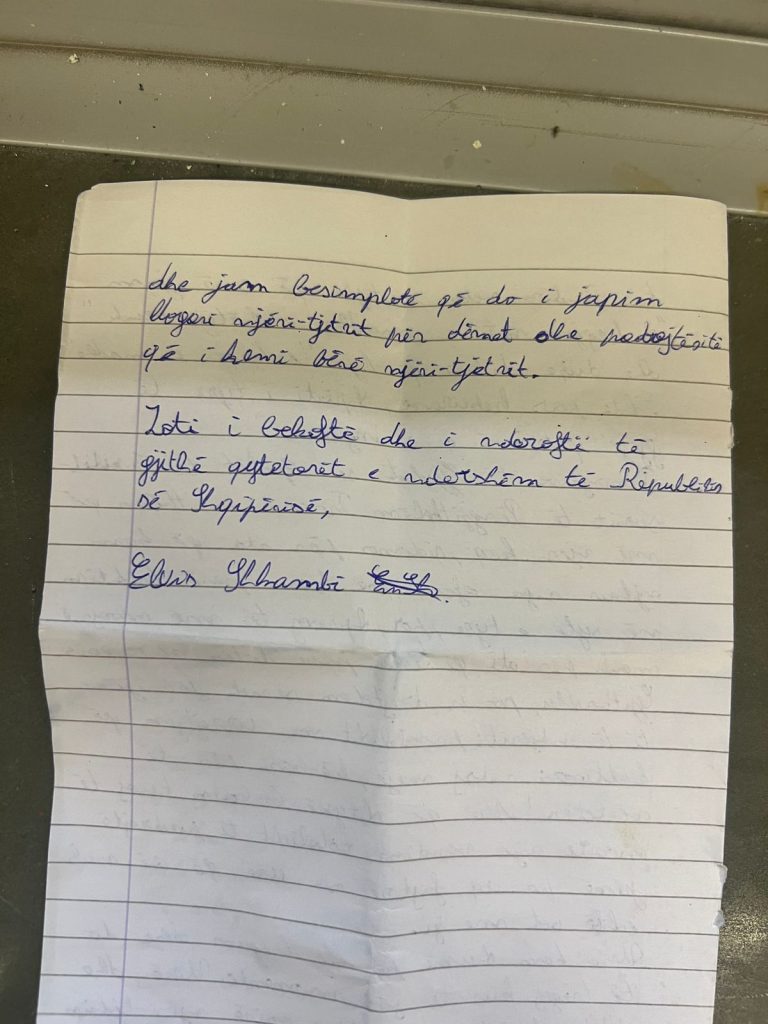 dhe jam besimplotë që do i japim
llogari njëri-tjetrit për dëmet dhe padrejtësitë
që i kemi bërë njëri-tjetrit.
Zoti i bekoftë dhe i nderoftë të
gjithë qytetarët e ndershëm të Republikës
së Shqipërisë,
Elvis Shkambi